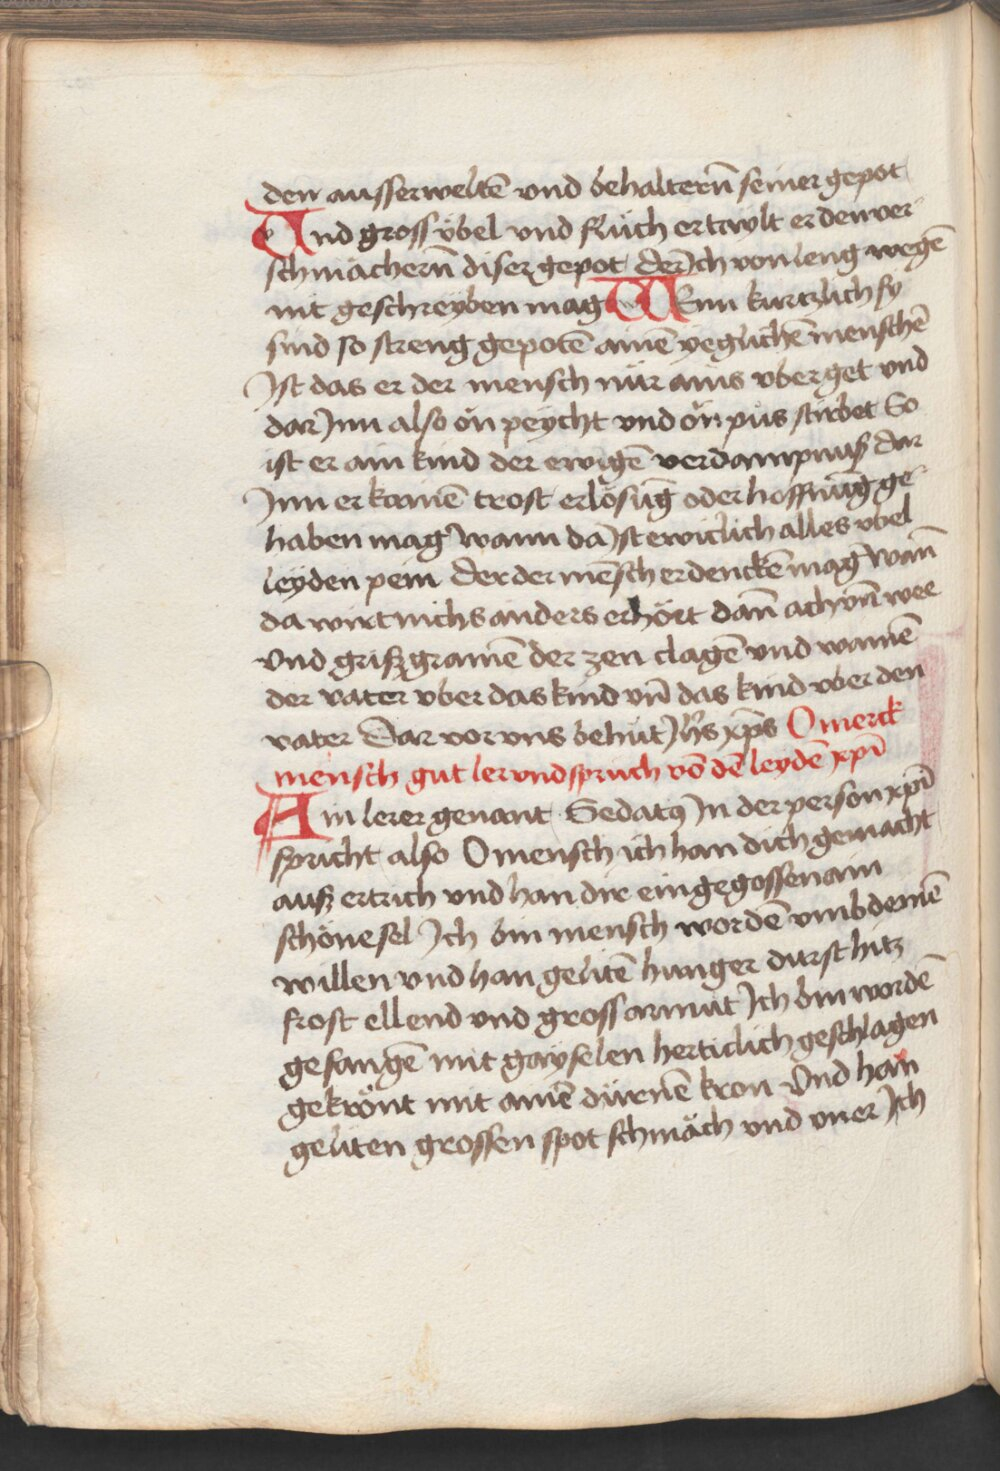 den ausserweltē vnd behalterñ seiner gepot
Und gross v̈bel vnd flüch ertaylt er den ver
schmächerñ diser gepot der Ich von leng wegē
nit geschreyben mag WEnn kurtzlich sy
sind so streng gepotē ainē yeglichē menschē
Ist das er der mensch nür ains vberget vnd
dar Jnn also ön peycht vnd ön püs stirbet So
ist er ain kind der ewigē verdampnuß dar
Jnn er kainē trost erlösūg oder hoffnūg ge
haben mag Wann da Jst ewiclich alles vbel
leyden pein der der mēsch erdenckē mag Wañ
da wirt nichs anders erhört dañ ach vñ wee
Vnd grißgramē der zen clagē vnd wainē
der vater vber das kind vñ das kind vber den
vater Dar vor vns behüt Jh̄s xp̄s O merck
mensch gut ler vnd spruch vō dē leydē xp̄i
Ain lerer genant Sedatꝯ Jn der person xp̄i
spricht also O mensch ich han dich gemacht
auß ertrich vnd han dir eingegossen ain
schöne sel Ich bin mensch wordē vmb deinē
willen vnd han gelitē hunger durst hitz
frost ellend vnd gross armut Ich bin wordē
gefangē mit gayselen herticlich geschlagen
gekrönt mit ainē dürnē kron Vnd han
geliten grossen spot schmäch vnd vner Ich